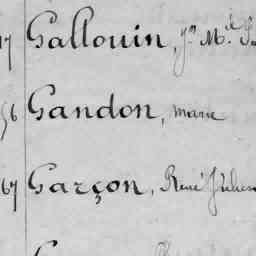 Gallouin, Jn Mel
56 Gandon, marie
67 Garçon, René Julien